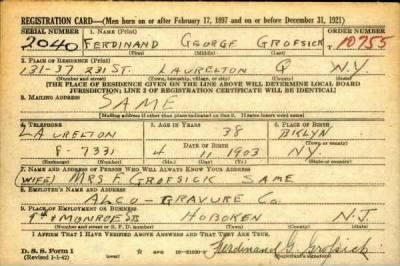 REGISTRATION CARD—(Men born on or after February 17, 1897 and on or before December 31, 1921)
SERIAL NUMBER 1. NAME (Print) ORDER NUMBER
2040 FERDINAND GEORGE GROFSICK T 10755
(First) (Middle) (Last)
2. PLACE OF RESIDENCE (Print)
131-37 231 ST. LAURELTON Q N.Y.
(Number and street) (Town, township, village, or city) (County) (State)
[THE PLACE OF RESIDENCE GIVEN ON THE LINE ABOVE WILL DETERMINE LOCAL BOARD
JURISDICTION; LINE 2 OF REGISTRATION CERTIFICATE WILL BE IDENTICAL]
3. MAILING ADDRESS
SAME
[Mailing address if other than place indicated on line 2. If same insert word same]
4. TELEPHONE 5. AGE IN YEARS 6. PLACE OF BIRTH
LAURELTON 38 BKLYN
DATE OF BIRTH (Town or county)
8-7331 4 11 1903 N.Y.
(Exchange) (Number) (Mo.) (Day) (Yr.) (State or country)
7. NAME AND ADDRESS OF PERSON WHO WILL ALWAYS KNOW YOUR ADDRESS
(WIFE) MRS F GROFSICK SAME
8. EMPLOYER'S NAME AND ADDRESS
ALCO-GRAVURE Co.
9. PLACE OF EMPLOYMENT OR BUSINESS
9th & MONROE STS HOBOKEN N.J.
(Number and street or R. F. D. number) (Town) (County) (State)
I AFFIRM THAT I HAVE VERIFIED ABOVE ANSWERS AND THAT THEY ARE TRUE.
D. S. S. Form 1
(Revised 1-1-42) (over) Ferdinand G. Grofsick